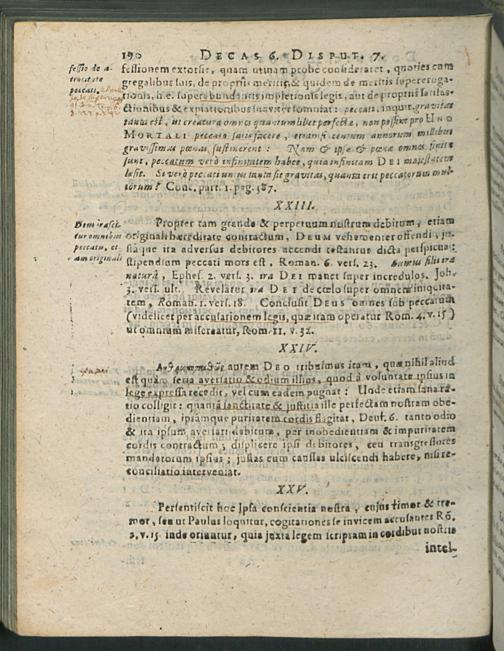 190 DECAS 6. DISPUT. 7.
fessio de a-
trocitate
peccati,
fessionem extorsit, quam utinam probè consideraret, quoties cum
gregalibus suis, de propriis meritis, & quidem de meritis supereroga-
tionis, h.e. superabundantis impletionis legis, aut de propriis satisfa-
ctionibus & expiationibus suaviter somniat: peccati, inquit, gravitas
tanta est, ut creatura omnis quantumlibet perfecta, non possit pro UNO
MORTALI peccato satisfacere, etiamsi centum annorum millibus
gravissimas poenas sustinerent: Nam & ipsa & poena omnis finita
sunt, peccatum verò infinitatem habet, quia infinitam DEI majestatem
laesit. Si verò peccati unius tanta sit gravitas, quanta erit peccatorum mul-
torum? Conc. part. 1. pag. 587.
XXIII.
Deus irasci-
tur omnibus
peccatis, et-
iam originali
Propter tam grande & perpetuum nostrum debitum, etiam
originali haereditate contractum, DEUM vehementer offendi, ju-
stâ que ira adversus debitores accendi testantur dicta perspicua:
stipendium peccati mors est, Roman. 6. vers. 23. Sumus filii irae
naturâ, Ephes. 2. vers. 3. ira DEI manet super incredulos. Joh.
3. vers. ult. Revelatur ira DEI de coelo super omnem iniquita-
tem, Roman. 1. vers. 18. Conclusit DEUS omnes sub peccatum
(videlicet per accusationem legis, quae iram operatur Rom. 4. v. 15)
ut omnium misereatur, Rom. 11. v. 32.
XXIV.
autem DEO tribuimus iram, quae nihil aliud
est quàm seria aversatio & odium illius, quod à voluntate ipsius in
lege expressa recedit, vel cum eadem pugnat: Unde etiam sana ra-
tio colligit: quantâ sanctitate & justitia ille perfectam nostram obe-
dientiam, ipsamque puritatem cordis flagitat, Deut. 6. tanto odio
& ira ipsum aversari debitum, per inobedientiam & impuritatem
cordis contractum; displicere ipsi debitores, ceu transgressores
mandatorum ipsius; justas eum caussas ulciscendi habere, nisi re-
conciliatio interveniat.
XXV.
Persentiscit hoc ipsa conscientia nostra, cujus timor & tre-
mor, seu ut Paulus loquitur, cogitationes se invicem accusantes Rō.
2. v. 15. inde oriuntur, quia juxta legem scriptam in cordibus nostris
intel-